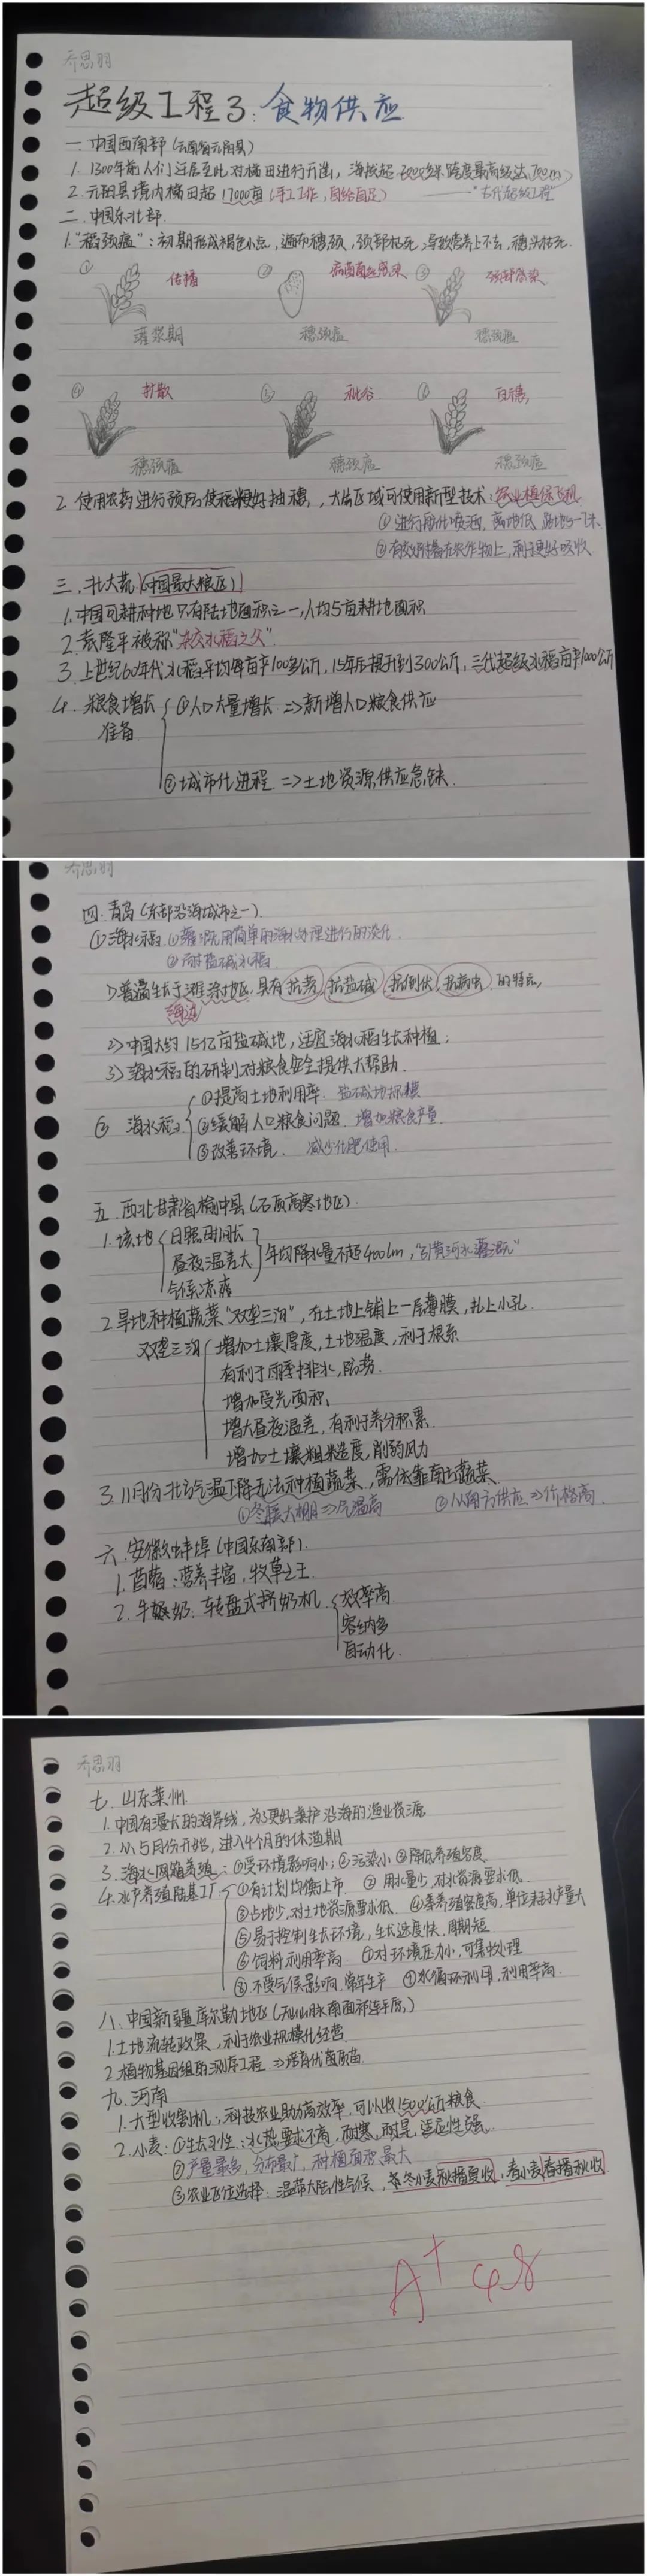 乔思羽
超级工程3：食物供应
一、中国西南部（云南省元阳县）
1. 1300年前人们迁居至此对梯田进行开凿，海拔超2000米跨度最高级达
"古代超级工程"
2. 元阳县境内梯田超17000亩（手工工作，自给自足）
二、中国东北部
1."穗颈瘟"：初期形成褐色小点，遍布穗颈，颈部枯死，导致营养上不去，穗头枯死.
① 传播
② 病菌菌丝感染
③ 颈部感染
灌浆期
穗颈瘟
穗颈瘟
④ 扩散
⑤ 秕谷
⑥ 白穗
穗颈瘟
穗颈瘟
穗颈瘟
2. 使用农药进行预防使稻更好抽穗，大片区域可使用新型技术：农业植保飞机
① 进行雾化喷洒，离地低
②有效附着在农作物上，利于更好吸收
三、北大荒（中国最大粮区）
1.中国可耕种地只有陆地面积之一，人均5亩耕地面积
2. 袁隆平被称"杂交水稻之父"
3. 上世纪60年代水稻平均每亩产100多公斤，15年后提升到300公斤，三代超级水稻亩产1000公斤
4. 粮食增长准备
①人口大量增长 => 新增人口粮食供应
②城市化进程 => 土地资源供应急缺.
乔思羽
四、青岛（东部沿海城市之一）
①海水稻 ①灌溉用简单的海水处理进行的淡化
②耐盐碱水稻
1>普遍生长于滩涂地区，具有抗涝，抗盐碱，抗倒伏，抗病虫 的特点，
海边
2> 中国大约15亿亩盐碱地，适宜海水稻生长种植；
3> 海水稻的研制对粮食安全提供大帮助.
② 海水稻
①提高土地利用率. 盐碱地
②缓解人口粮食问题. 增加粮食产量
③改善环境. 减少化肥使用.
五、西北甘肃省榆中县（石质高寒地区）
1. 该地
日照时间长
昼夜温差大
气候凉爽
年均降水量不超400mm，"引黄河水灌溉"
2.旱地种植蔬菜"双垄三沟"，在土地上铺上一层薄膜，扎上小孔
双垄三沟
增加土壤厚度，土地温度，利于根系
有利于雨季排水，防涝.
增加受光面积，
增大昼夜温差，有利于养分积累.
增加土壤粗糙度，削弱风力
3. 11月份北方气温下降无法种植蔬菜，需依靠南方蔬菜
①冬暖大棚 => 气温高 ②从南方供应 => 价格高.
六、安徽蚌埠（中国东南部）.
1. 苜蓿：营养丰富，牧草之王
2. 牛奶：转盘式挤奶机
效率高
容纳多
自动化.
乔思羽
七、山东莱州
1.中国有漫长的海岸线，为了更好养护沿海的渔业资源
2. 从5月份开始，进入4个月的休渔期
3. 海水网箱养殖：①受环境影响小；②污染小 ③降低养殖密度
4.水产养殖陆基工厂
①有计划均衡上市 ② 用水量少，对水资源要求低
③占地少，对土地资源要求低 ④养殖密度高，单位耗水产量大
⑤易于控制生长环境，生长速度快，周期短
⑥饲料利用率高 ⑦对环境压力小，可集中处理
⑧不受气候影响，常年生产 ⑨水循环利用，利用率高.
八、中国新疆库尔勒地区（天山山脉南面
1.土地流转政策，利于农业规模化经营
2.植物基因组的测序工程 => 培育优菌原苗
九、河南
1. 大型收割机：科技农业助力高效率，可以收1500公斤粮食
2. 小麦：①生长习性：水热要求不高，耐寒，耐旱，适应性强.
②产量最多，分布最广，种植面积最大
③农业区位选择：温带大陆性气候，冬小麦秋播夏收，春小麦春播秋收.
A+ 98